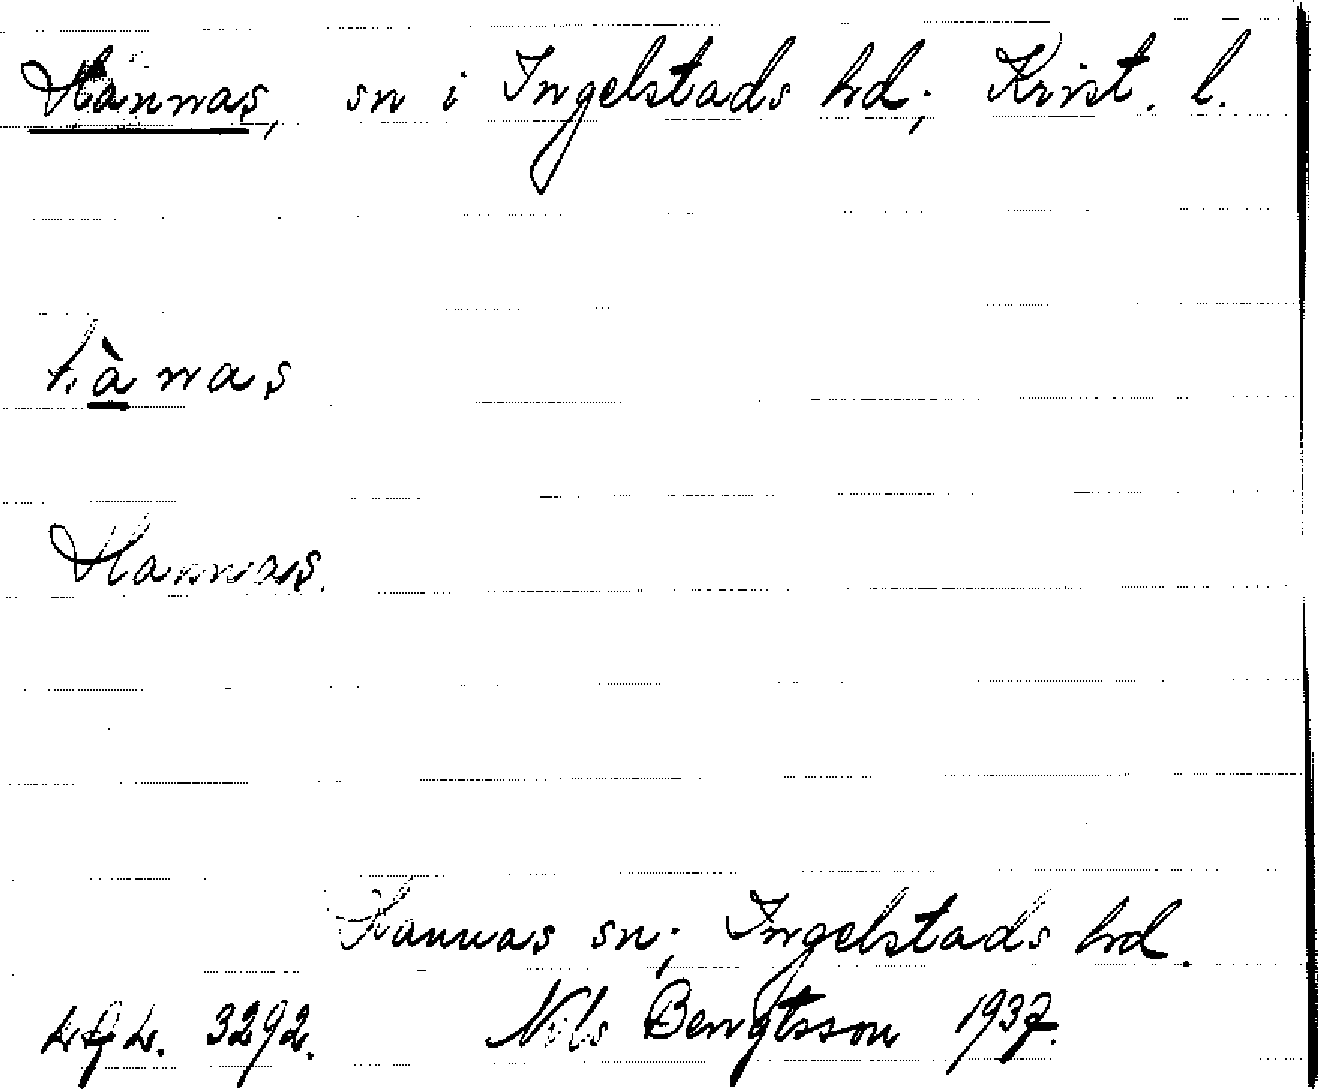 Hannas, sn i Ingelstads hd; Krist. l.
hànas
Hannas.
Hannas sn; Ingelstads hd.
3292. Nils Bengtsson 1937.